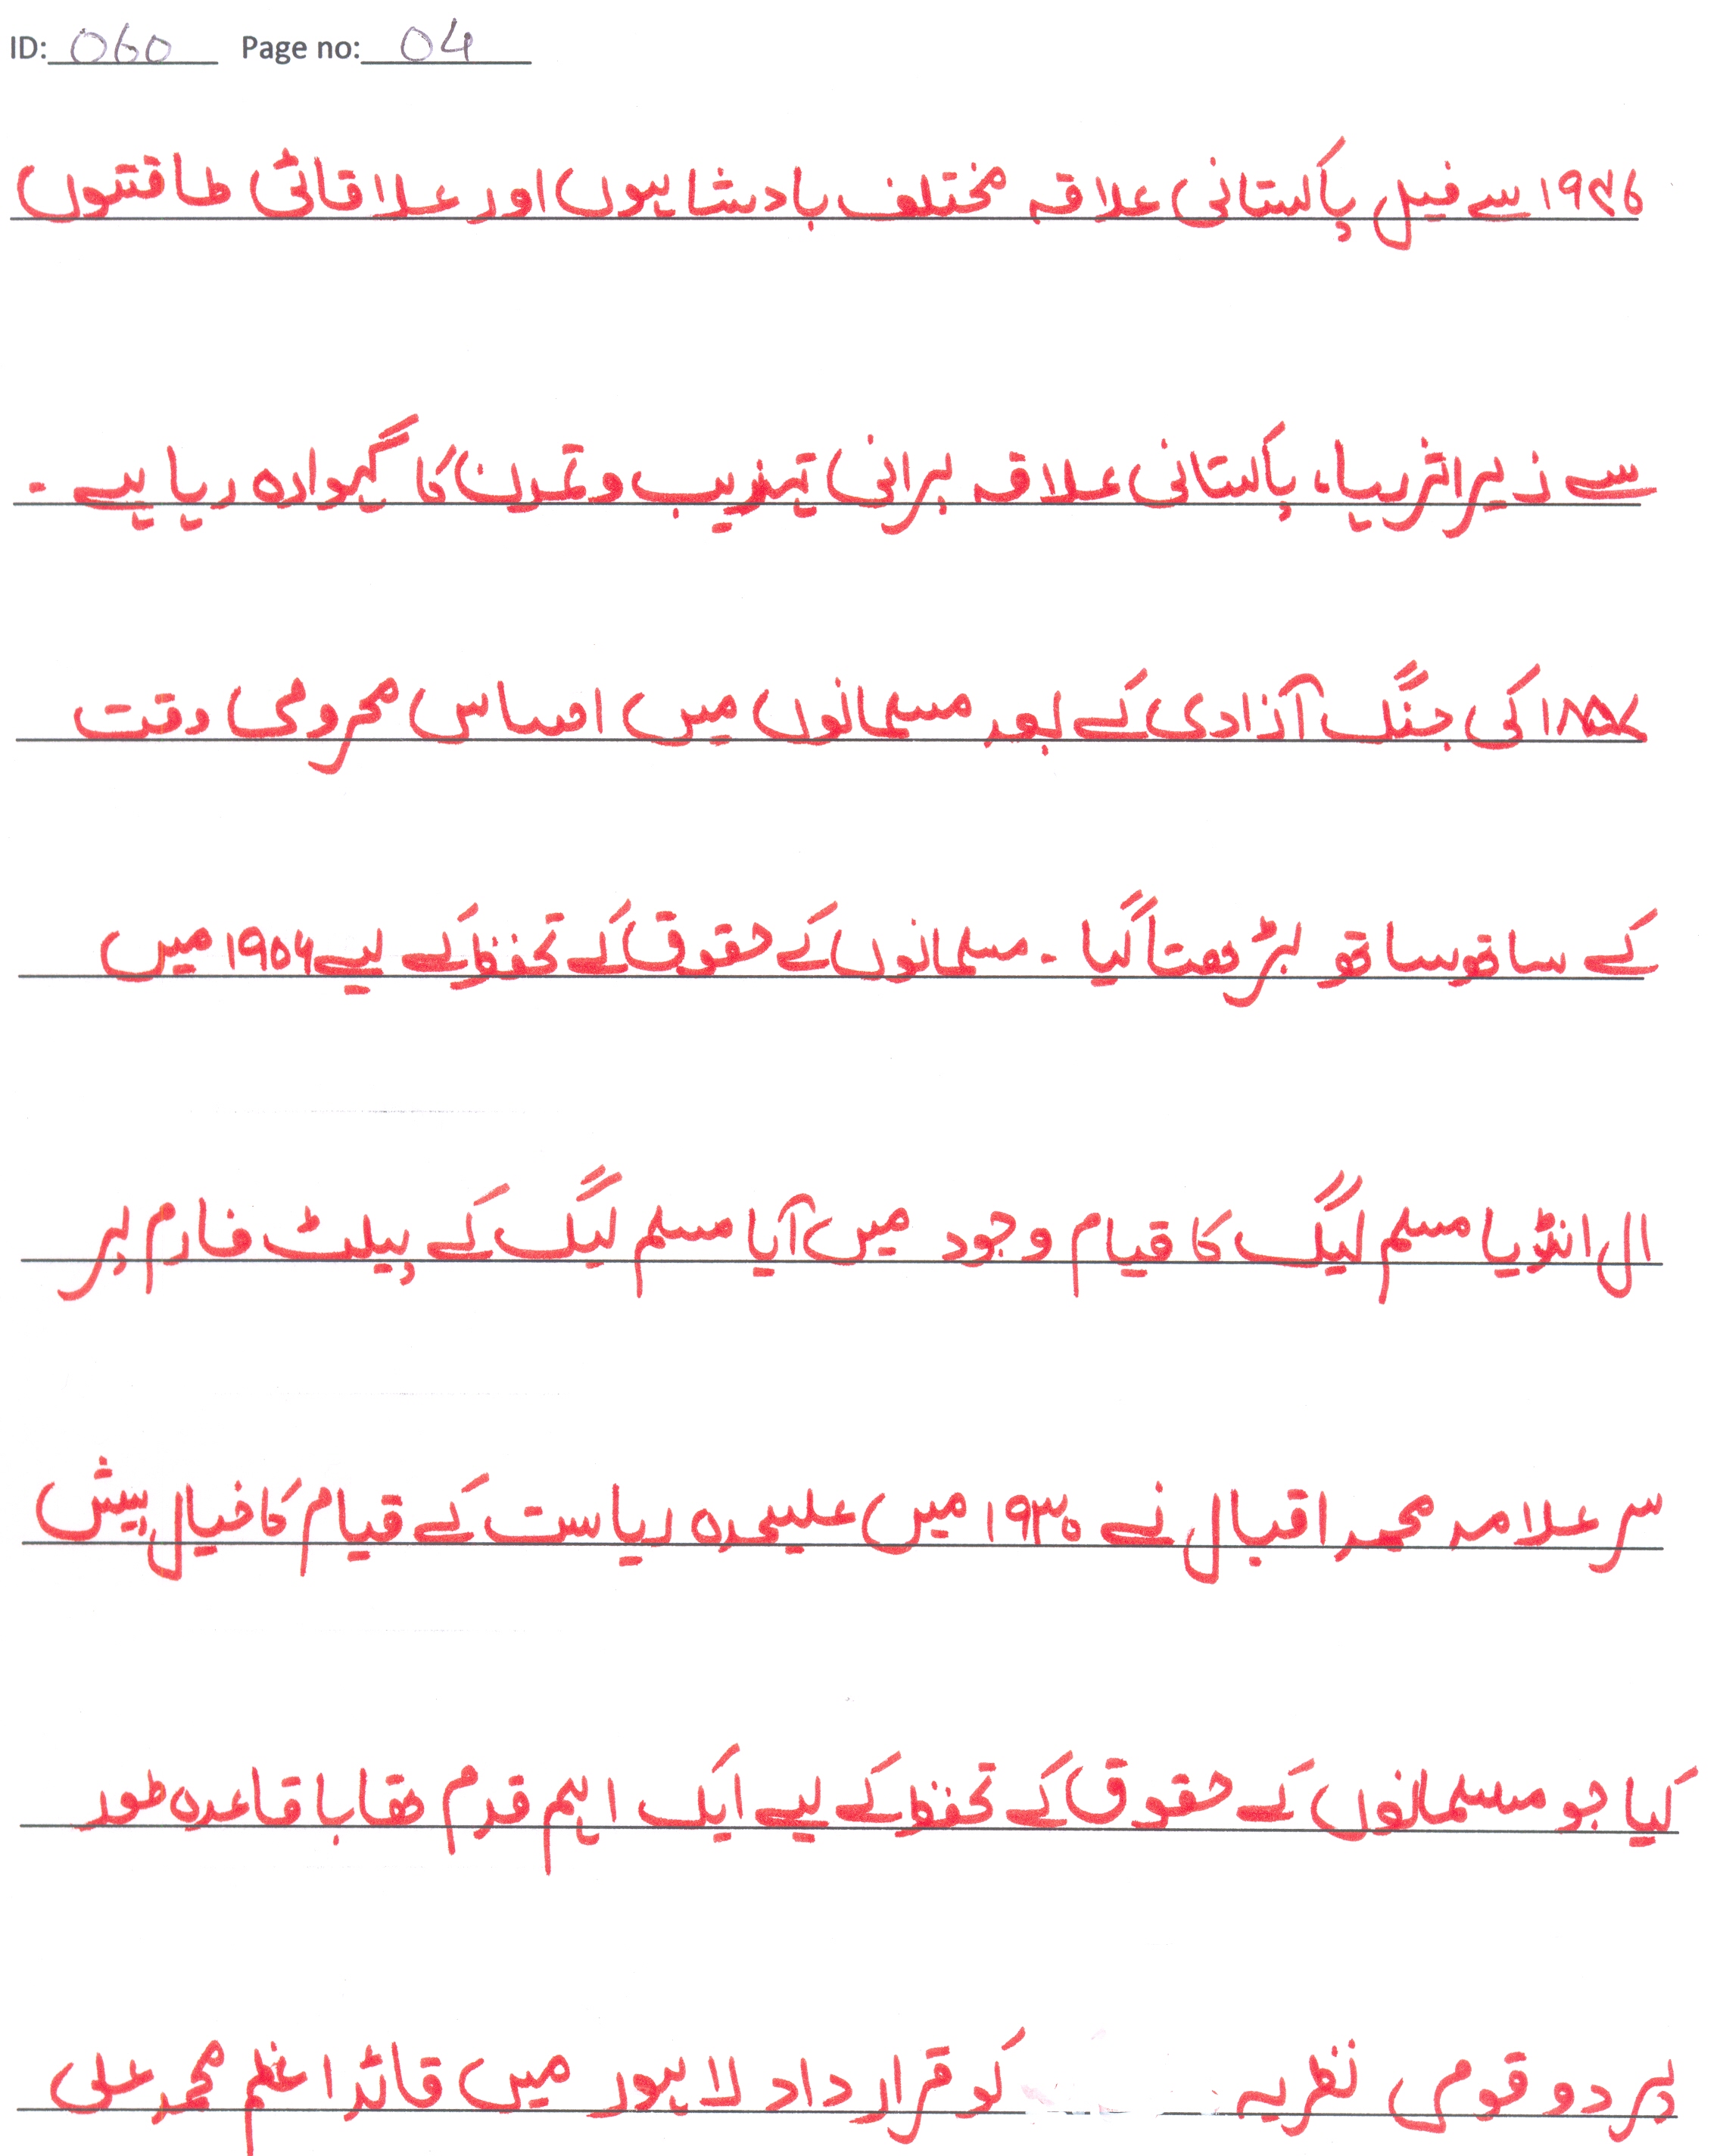 ID: 060 Page no: 04
سے قبل پاکستانی علاقہ مختلف بادشاہوں اور علاقائی طاقتوں
سے زیر اثر رہا، پاکستانی علاقہ پرانی تہذیب و تمدن کا گہوارہ رہا ہے۔
کی جنگ آزادی کے بعد مسلمانوں میں احساس محرومی وقت
کے ساتھ ساتھ بڑھتا گیا۔ مسلمانوں کے حقوق کے تحفظ کے لیے ۱۹۰۶ میں
ال انڈیا مسلم لیگ کا قیام وجود میں آیا مسلم لیگ کے پیلٹ فارم پر
سر علامہ محمد اقبال نے ۱۹۳۰ میں علیحدہ ریاست کے قیام کا خیال پیش
کیا جو مسلمانوں کے حقوق کے تحفظ کے لیے ایک اہم قدم تھا باقاعدہ طور
پر دو قومی نظریہ کو قرار داد لاہور میں قائد اعظم محمد علی